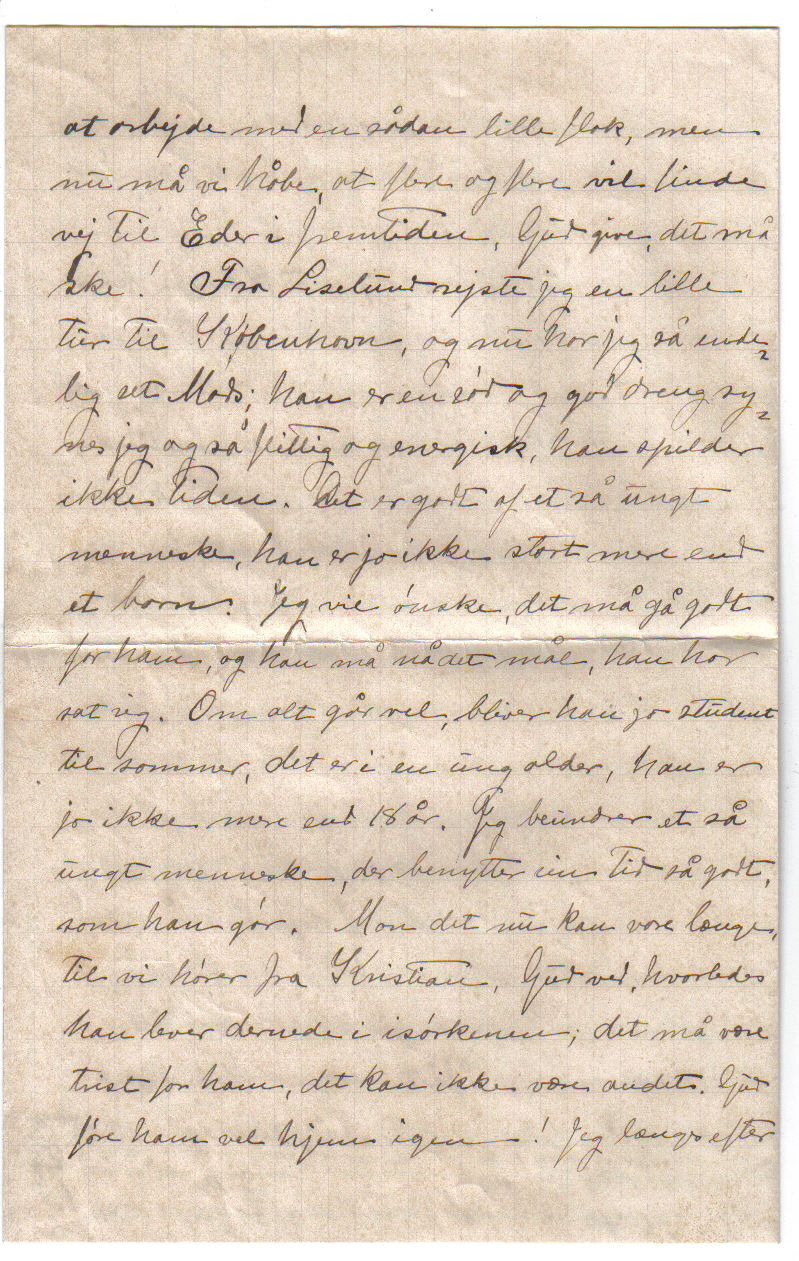 at arbejde med en sådan lille flok, men
nu må vi håbe, at flere og flere vil finde
vej til Eder i fremtiden, Gud give, det må
ske! Fra Liselund rejste jeg en lille
tur til København, og nu har jeg så ende=
lig set Mads; han er en sød og god dreng sy=
nes jeg og så flittig og energisk, han spilder
ikke tiden. Det er godt af et så ungt
menneske, han er jo ikke stort mere end
et barn. Jeg vil ønske, det må gå godt
for ham, og han må nå det mål, han har
sat sig. Om alt går vel, bliver han jo student
til sommer, det er i en ung alder, han er
jo ikke mere end 18 år. Jeg beundrer et så
ungt menneske, der benytter sin tid så godt,
som han gør. Mon det nu kan vare længe,
til vi hører fra Kristian, Gud ved, hvorledes
han lever dernede i isørkenen; det må være
trist for ham, det kan ikke være andet. Gud
føre ham vel hjem igen! Jeg længes efter